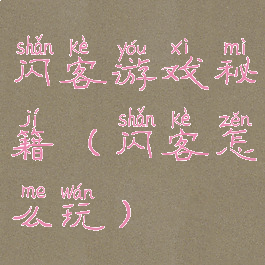 shǎn kè yóu xì mì
闪客游戏秘
jí shǎn kè zěn
籍（闪客怎
me wán
么玩）